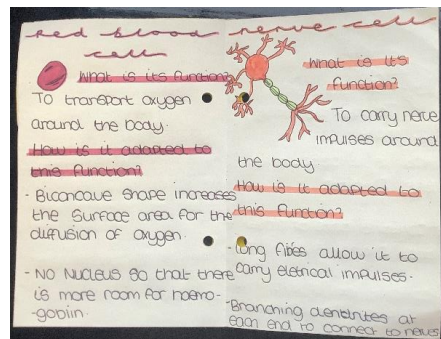 red blood
cell
What is its function?
To transport oxygen
around the body.
How is it adapted to
this function?
- Biconcave shape increases
the surface area for the
diffusion of oxygen.
- NO Nucleus so that there
is more room for haemo-
-goblin.
nerve cell
What is its
function?
To carry nerve
impulses around
the body
How is it adapted to
this function?
- Long fibres allow it to
carry eletrical impulses.
- Branching dendrites at
each end to connect to